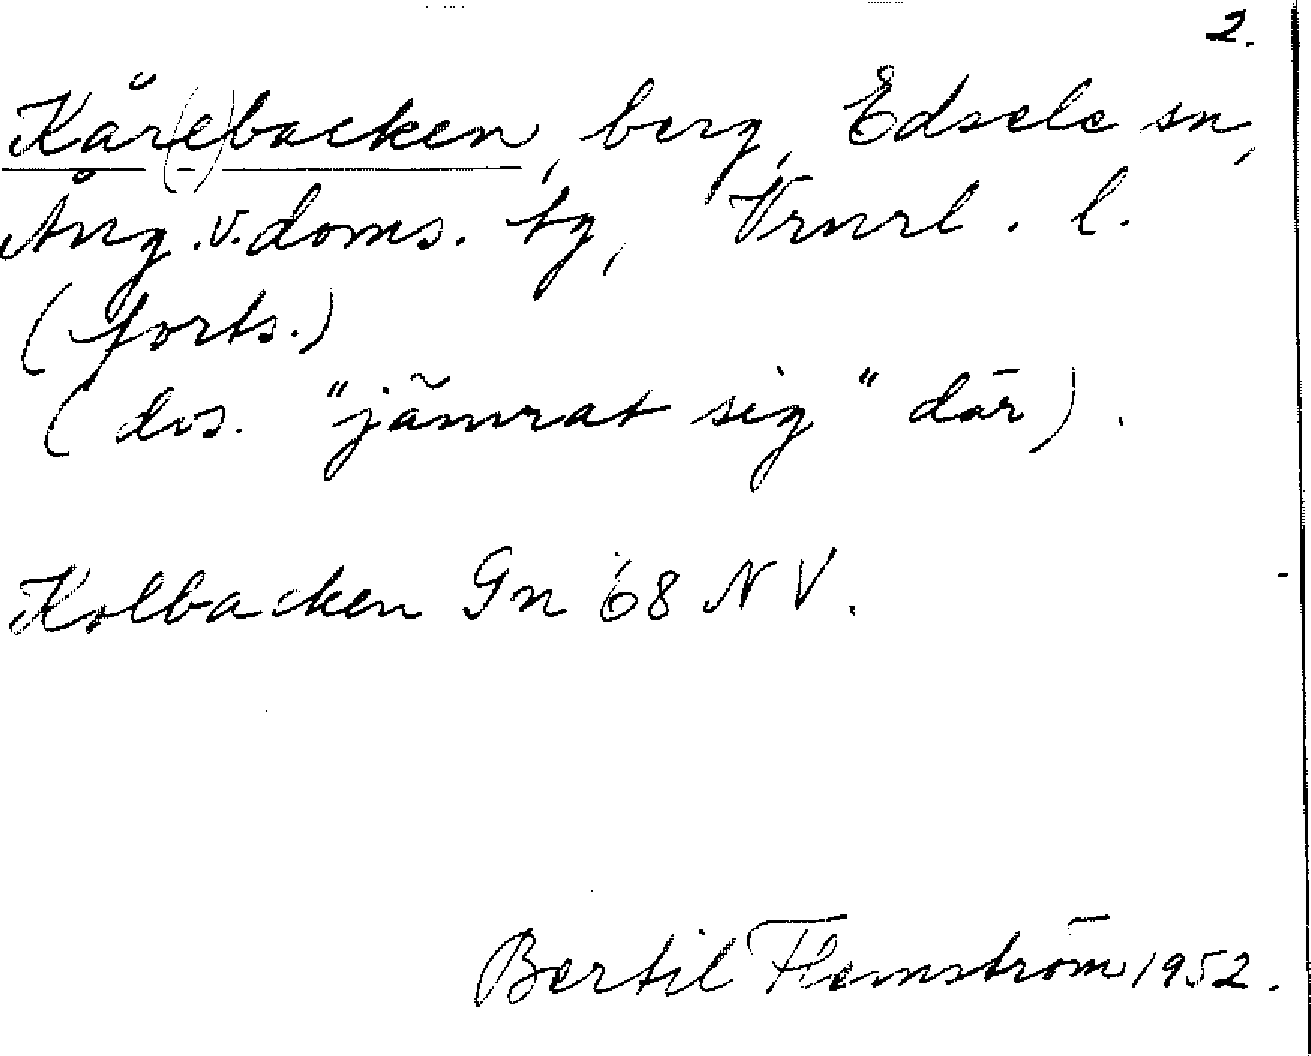 2.
Kår(e)backen, berg, Edsele sn,
Ång.v.doms. tg, Vrnrl. l.
(forts.)
(dvs. "jämrat sig" där).
Kolbacken Gn 68 NV.
Bertil Flemström 1952.